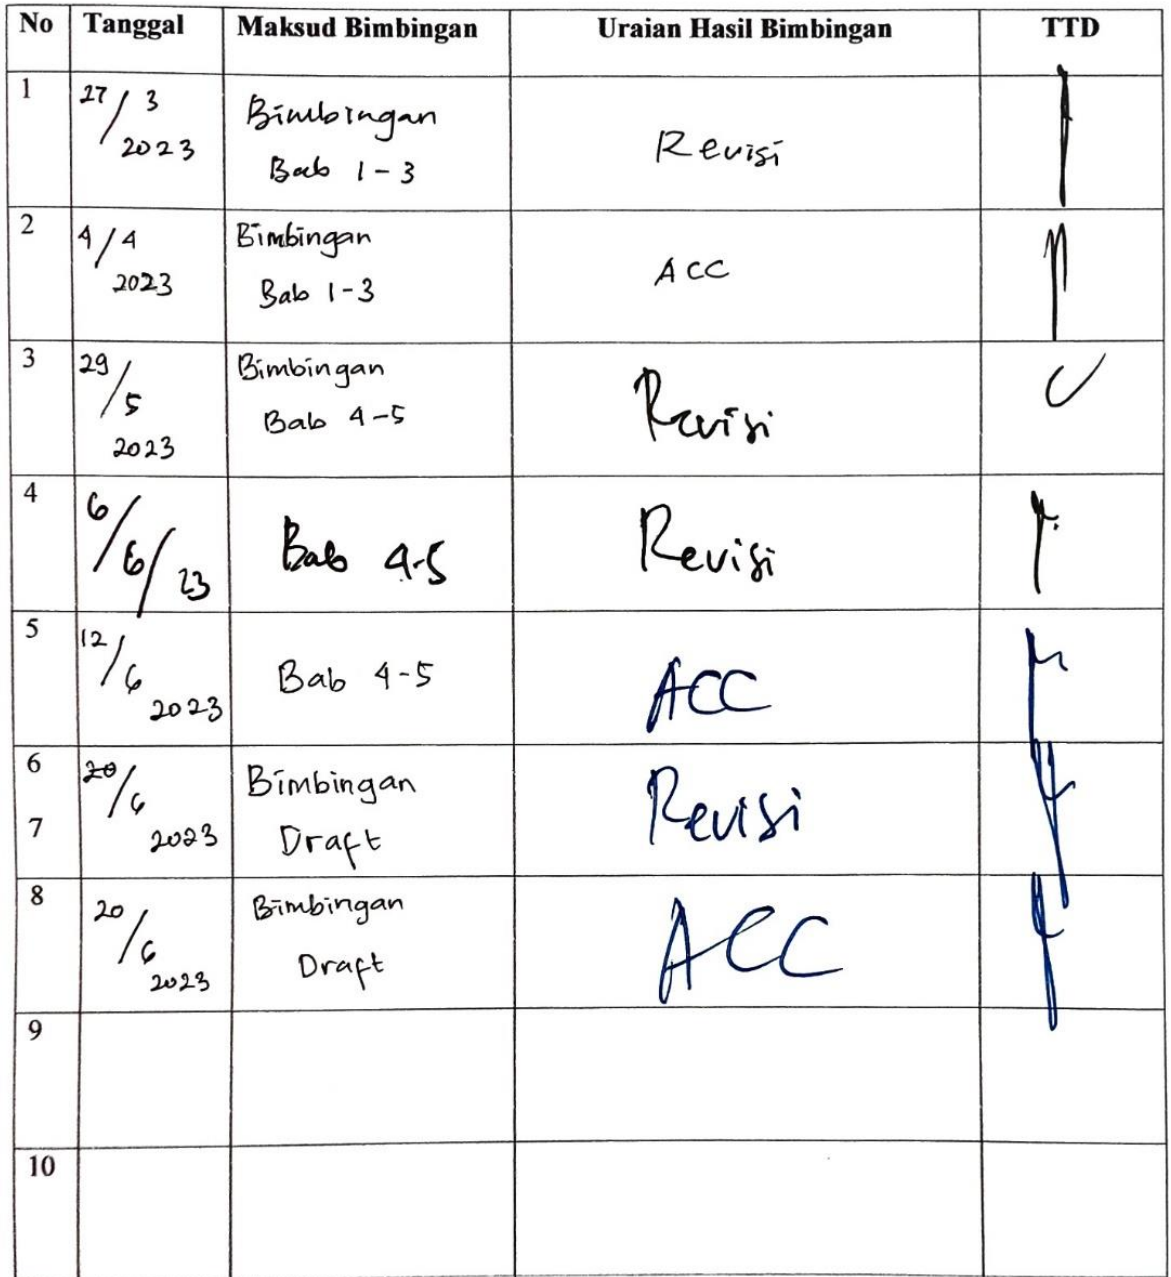 No Tanggal Maksud Bimbingan Uraian Hasil Bimbingan TTD
1 27/3 2023 Bimbingan Bab 1-3 Revisi
2 4/4 2023 Bimbingan Bab 1-3 ACC
3 29/5 2023 Bimbingan Bab 4-5 Revisi
4 6/6/23 Bab 4-5 Revisi
5 12/6 2023 Bab 4-5 ACC
6 20/6 2023 Bimbingan Draft Revisi
7
8 20/6 2023 Bimbingan Draft ACC
9
10